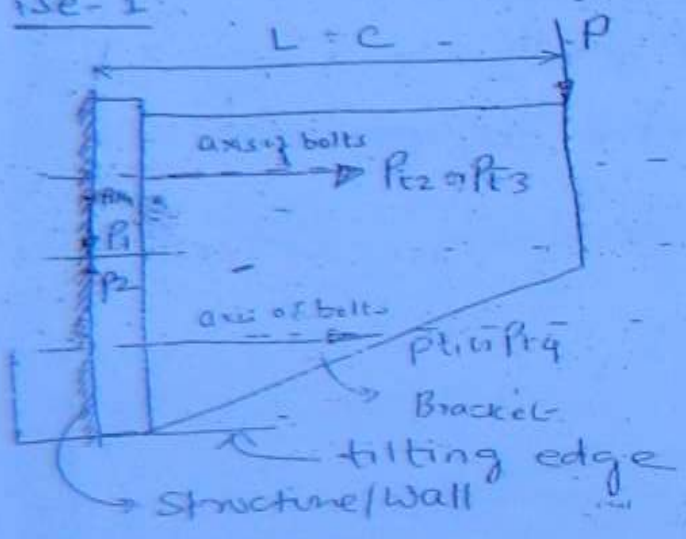 L = C
P
axis of bolts
Pt2 or Pt3
P1
P2
axis of bolts
Pt1 or Pt4
Bracket
tilting edge
Structure/Wall